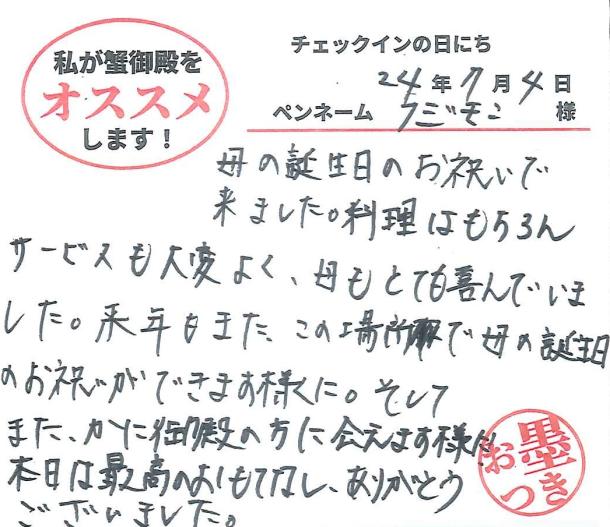 私が蟹御殿を
オススメ
します！
チェックインの日にち
24年7月4日
ペンネーム クミジモン 様
母の誕生日のお祝いで
来ました。料理はもちろん
サービスも大変よく、母もとても喜んでいま
した。来年もまた、この場所で母の誕生日
のお祝いができます様に。そして
また、かに御殿の方に会えます様に
本日は最高のおもてなし、ありがとう
ございました。
お墨つき